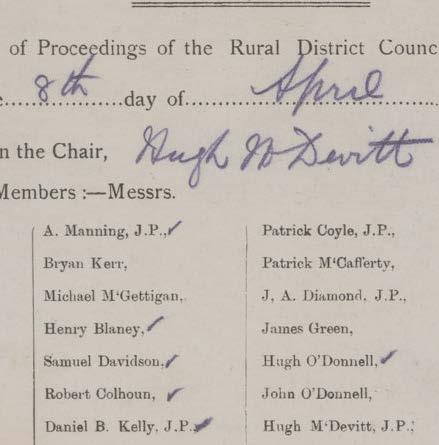 of Proceedings of the Rural District Counc
e....8th....day of....April....
n the Chair, Hugh McDevitt
Members :—Messrs.
A. Manning, J.P.,✓
Bryan Kerr,
Michael M'Gettigan,
Henry Blaney,✓
Samuel Davidson,✓
Robert Colhoun, ✓
Daniel B. Kelly, J.P.,✓
Patrick Coyle, J.P.,
Patrick M'Cafferty,
J. A. Diamond, J.P.,
James Green,
Hugh O'Donnell,✓
John O'Donnell,
Hugh M'Devitt, J.P.,